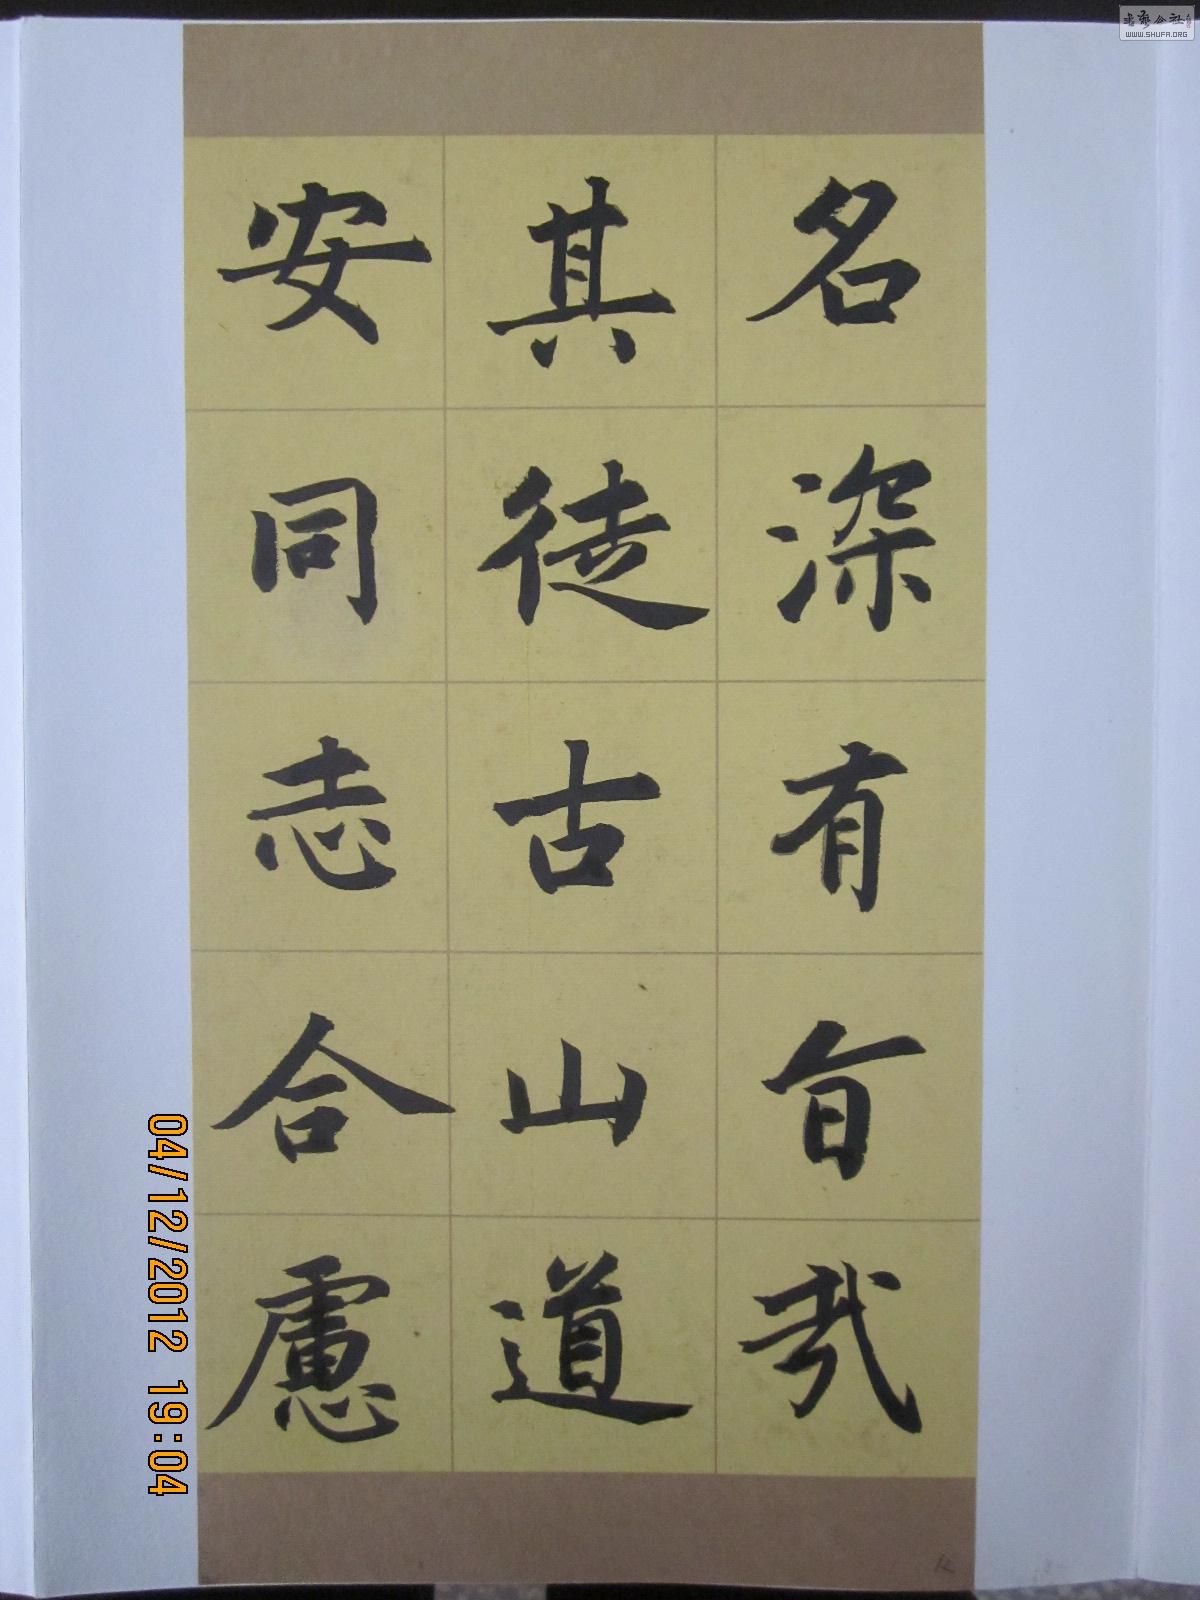 名深有旨哉
其徒古山道
安同志合慮
04/12/2012 19:04
书艺公社
WWW.SHUFA.ORG
12